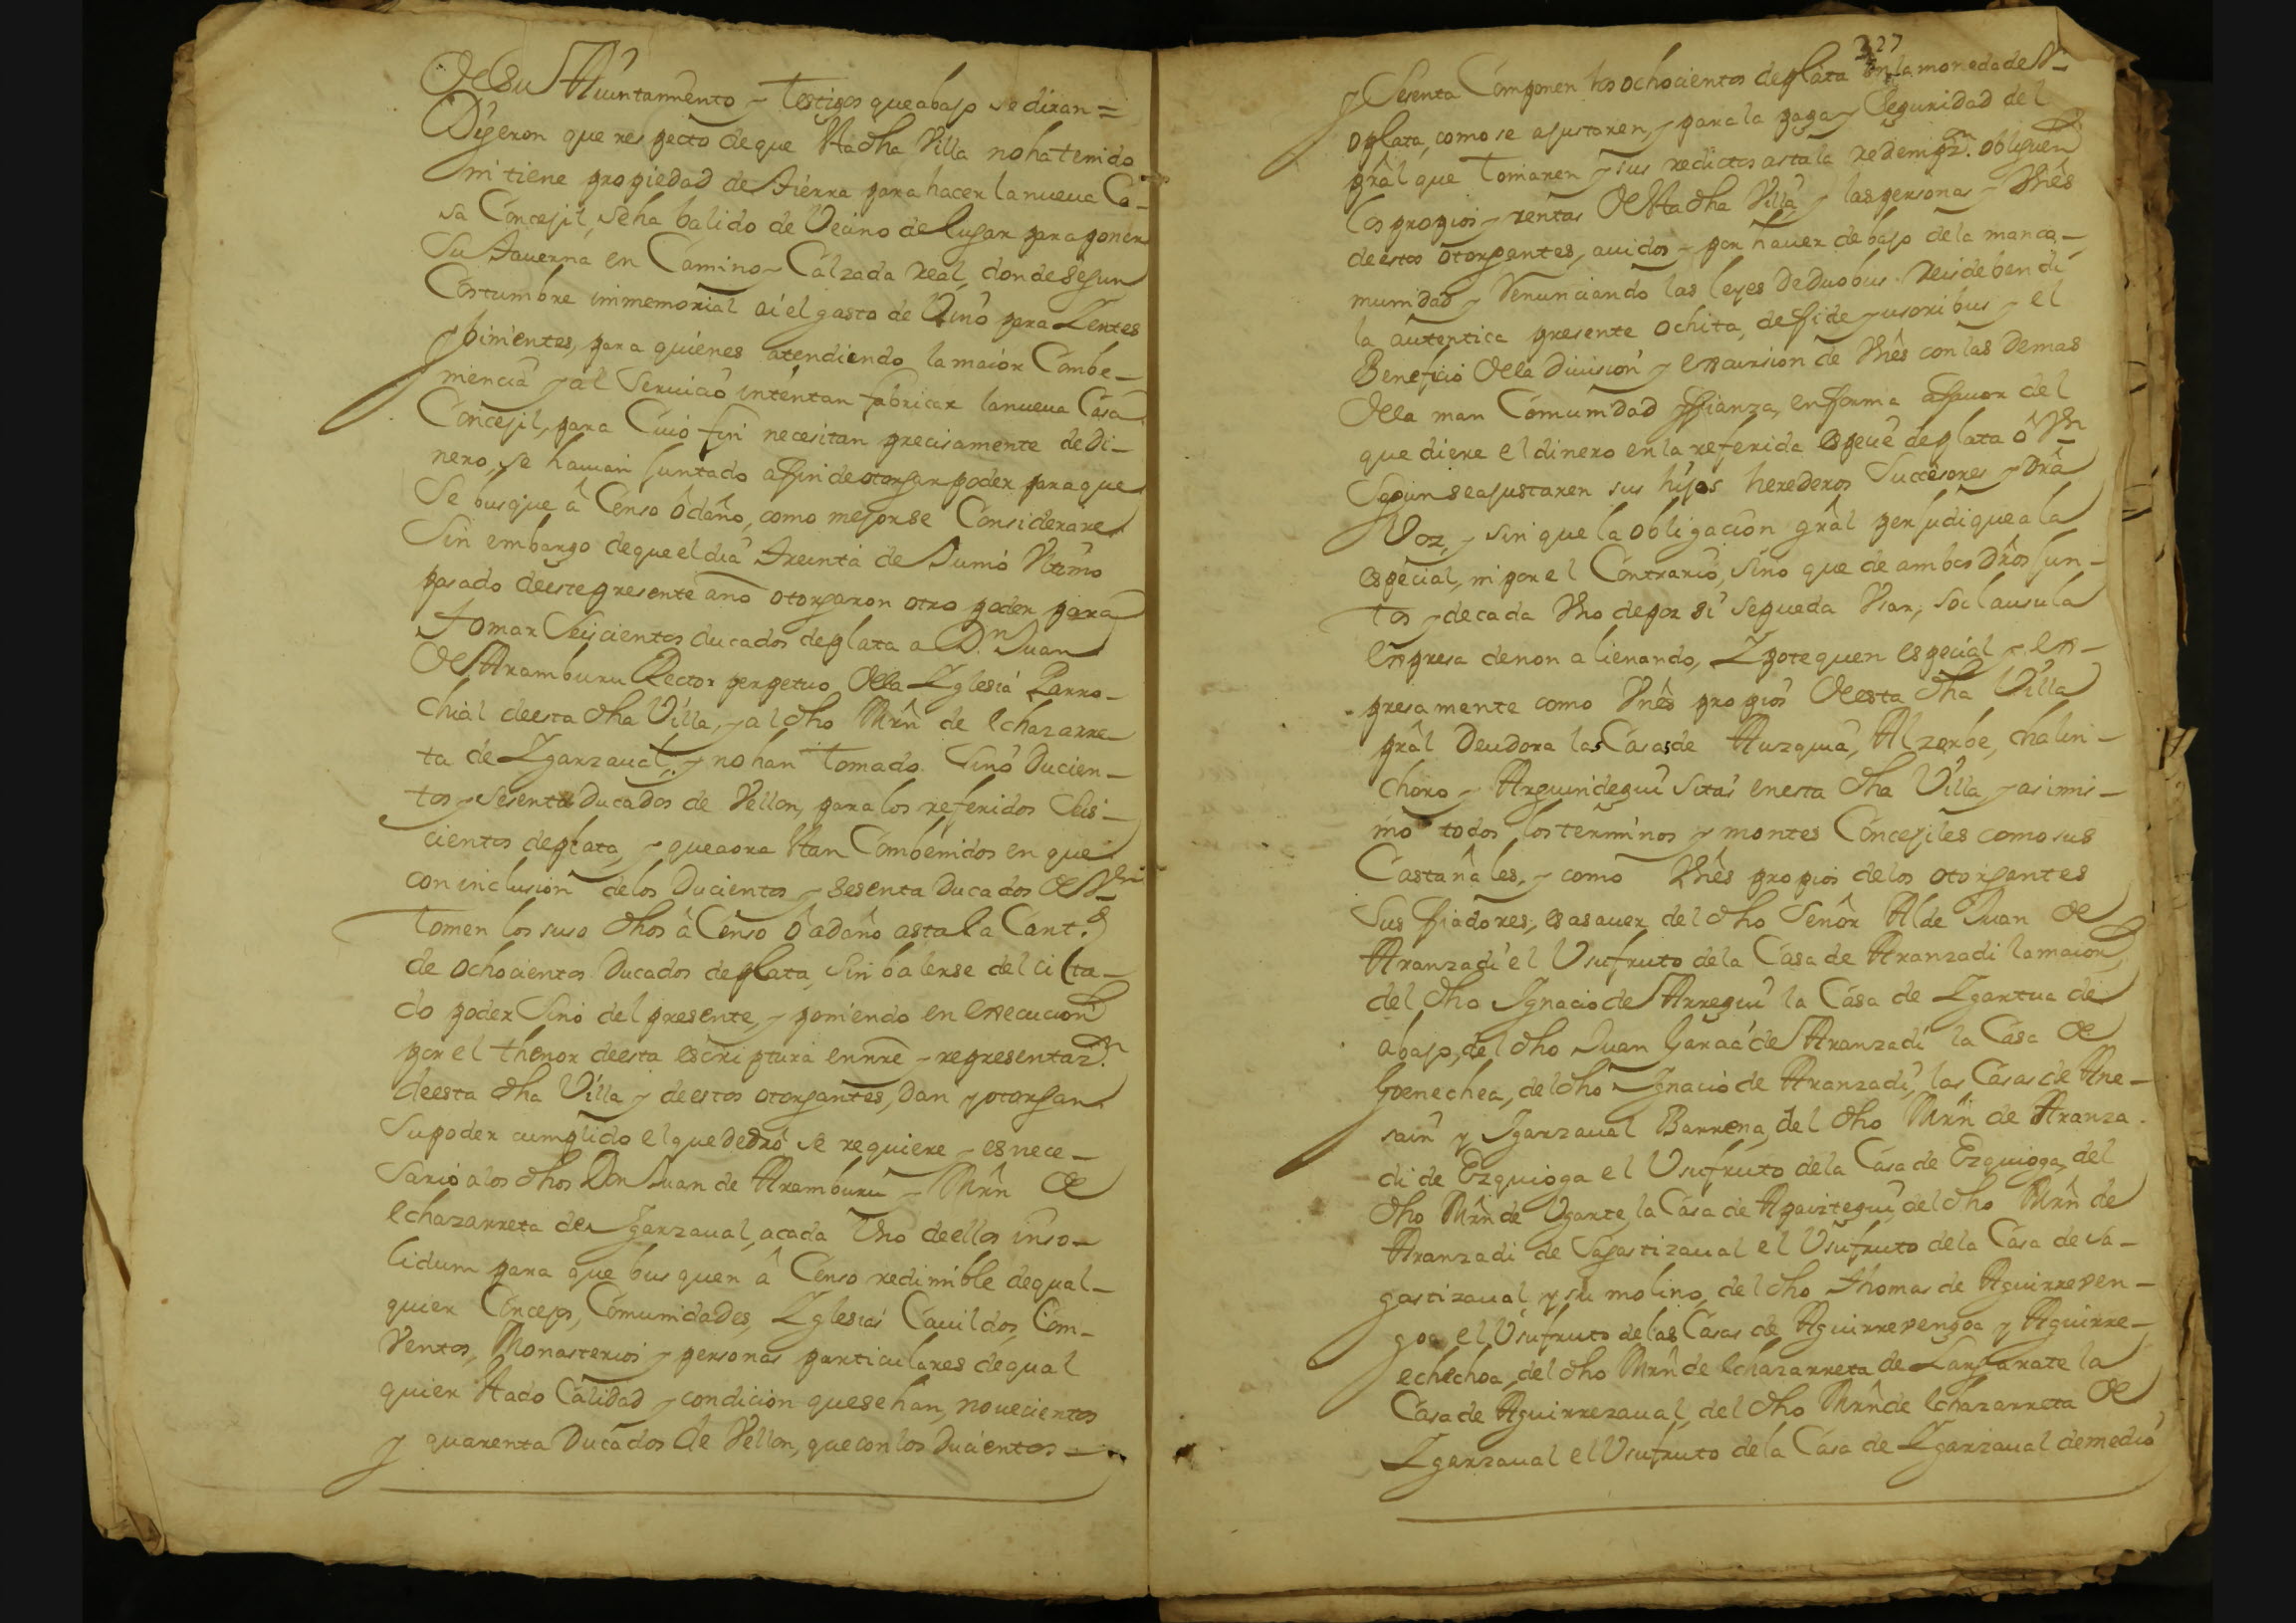 de su Aiuntamiento y testigos que abajo se diran =
Dijeron que respecto de que Sta dha Villa no ha tenido
ni tiene propiedad de tierra para hacer la nueua Ca-
sa Concejil, se ha balido de Vecino de lugar para poner
su tauerna en Camino y Calzada real, donde segun
Costumbre immemorial ai el gasto de Vino para Zentes
y bimientes, para quienes atendiendo la maior Combe-
niencia y al seruicio intentan fabricar la nueua Casa
Concejil, para Cuio fin necesitan precisamente de Di-
nero, se hauian Juntado a fin de otorgar poder para que
se busque â Censo ô daño, como mejor se Considerare
Sin embargo de que el dia treinta de Junio Vltimo
pasado de este presente año otorgaron otro poder para
tomar Seiscientos ducados de plata a Dn. Juan
de Aramburu Rector perpetuo de la Yglesia Parro-
chial de esta dha Villa, y al dho Mrn de Echazarre
ta de Ygarzaual, y no han tomado Sino Ducien-
tos y sesenta Ducados de Vellon, para los referidos Seis-
cientos de plata, y que aora stan Combenidos en que
con inclusion de los Ducientos y Sesenta Ducados de Vn
tomen los suso dhos â Censo ô a daño asta la Cant.d
de ochocientos Ducados de plata, sin balerse del cita-
do poder Sino del presente, y poniendo en execucion
por el thenor de esta escriptura en nre y representaz.n
de esta dha Villa y de estos otorgantes, Dan y otorgan
su poder cumplido el que de dro se requiere y es nece-
sario a los dhos Dn Juan de Aramburu y Mrn de
Echazarreta de Ygarzaual, a cada Vno de ellos inso-
lidum para que busquen â Censo redimible de qual-
quier Concejos, Comunidades, Yglesias Cauildos, Com-
Ventos, Monasterios y personas particulares de qual
quier stado Calidad y condicion que se han, nouecientos
y quarenta Ducados de Vellon, que con los Ducientos
227
y Sesenta Componen los ochocientos de plata en la moneda de Vn
o plata, como se ajustaren, y para la paga y Seguridad del
prâl que tomaren y sus redictos asta la redempz.n obliguen
los propios y rentas de Sta dha Villa y las personas y Vnês
de estos otorgantes, auidos y por hauer debajo de la manco-
munidad y renunciando las leyes De duobus reis debendi
la autentica presente ochita, de fide yusoribus y el
Beneficio de la Diuision y excursion de Vnês con las Demas
de la man Comunidad y fianza, en forma a fauor del
que diere el dinero en la referida especie de plata ô Vn
Segun se ajustaren sus hijos herederos Successores y Drâ
Voz, y sin que la obligacion grâl perjudique a la
especial, ni por el Contrario, sino que de ambos Drôs Jun-
tos y de cada Vno de por si se pueda Vsar, so clausula
expresa de non alienando, Ypotequen especial y ex-
presamente como Vnês propios de esta dha Villa
prâl Deudora las Casas de Auzquia, Alzorbe, chalin-
choro y Arguindegui sitas en esta dha Villa y asimis-
mo todos los terminos y montes Concejiles como sus
Castañales, y como Vnês propios de los otorgantes
Sus fiadores, es a sauer del dho Señor Alde Juan de
Aranzadi el Vsufruto de la Casa de Aranzadi la maior,
del dho Ignacio de Arregui la Casa de Ygartua de
abajo, del dho Juan Garcia de Aranzadi la Casa de
Goenechea, del dho Ignacio de Aranzadi, las Casas de Ane-
sain y Igarzaual Barrena, del dho Mrn de Aranza
di de Ezquioga el Vsufruto de la Casa de Ezquioga, del
dho Mrn de Vgarte, la Casa de Apaiztegui, del dho Mrn de
Aranzadi de Sagastizaual el Vsufruto de la Casa de Sa-
gastizaual y su molino, del dho thomas de Aguirreven-
goa el Vsufruto de las Casas de Aguirrevengoa y Aguirre-
echechoa, del dho Mrn de Echazarreta de la
Casa de Aguirrezaual, del dho Mrn de Echazarreta de
Ygarzaual el Vsufruto de la Casa de Ygarzaual de medio